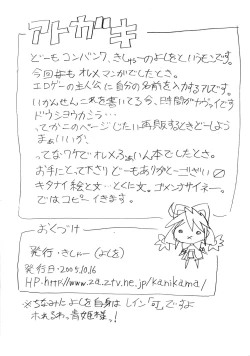 アトガキ
どーもコンバンワ、きしゅーのよしをというモンです。
今回本もオレメマンガでしたとさ。
エロゲーの主人公に自分の名前を入力するアレです。
いかんせんこれを書いてる今、日時間がヤヴァイです
ドウシヨウカシラ…
ってかこのページじたい再販するときどーしよう
まぁいいか、
ってなワケでオレメろぁいん本でしたとさ。
お手にとって下さりどーもありがとーございい
キタナイ絵と文…とくに文。ゴメンナサイネー。
ではコピーイきます。
おくづけ
発行・きしゅー(よしを)
発行日・2005.10.16
HP・http://www.za.ztv.ne.jp/kanikama/
※ちなみによしを自身はレイン「可」ですよ
ホれるわ。青姫様。!